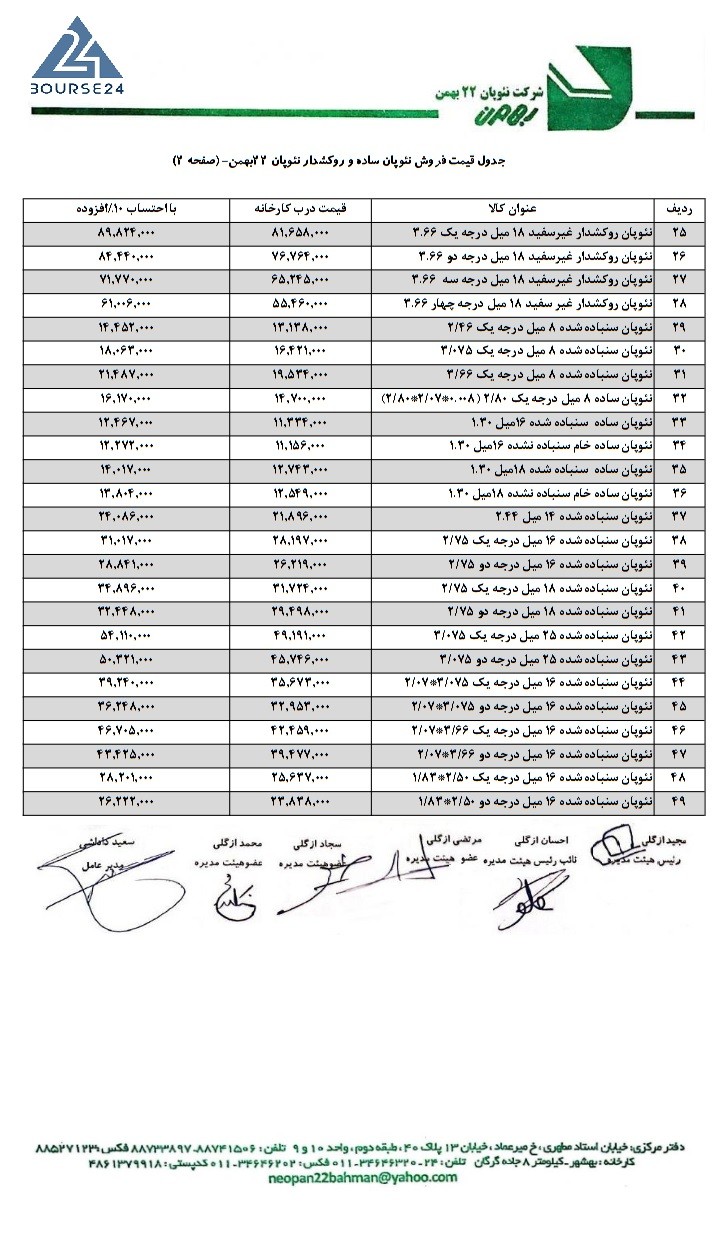 BOURSE24
شرکت نئوپان ۲۲ بهمن
بهمن
جدول قیمت فروش نئوپان ساده و روکشدار نئوپان ۲۲بهمن- (صفحه ۲)
ردیف عنوان کالا قیمت درب کارخانه با احتساب ۱۰٪افزوده
۲۵ نئوپان روکشدار غیرسفید ۱۸ میل درجه یک ۳.۶۶ ۸۱,۶۵۸,۰۰۰ ۸۹,۸۲۴,۰۰۰
۲۶ نئوپان روکشدار غیرسفید ۱۸ میل درجه دو ۳.۶۶ ۷۶,۷۶۴,۰۰۰ ۸۴,۴۴۰,۰۰۰
۲۷ نئوپان روکشدار غیرسفید ۱۸ میل درجه سه ۳.۶۶ ۶۵,۲۴۵,۰۰۰ ۷۱,۷۷۰,۰۰۰
۲۸ نئوپان روکشدار غیر سفید ۱۸ میل درجه چهار ۳.۶۶ ۵۵,۴۶۰,۰۰۰ ۶۱,۰۰۶,۰۰۰
۲۹ نئوپان سنباده شده ۸ میل درجه یک ۲/۴۶ ۱۳,۱۳۸,۰۰۰ ۱۴,۴۵۲,۰۰۰
۳۰ نئوپان سنباده شده ۸ میل درجه یک ۳/۰۷۵ ۱۶,۴۲۱,۰۰۰ ۱۸,۰۶۳,۰۰۰
۳۱ نئوپان سنباده شده ۸ میل درجه یک ۳/۶۶ ۱۹,۵۳۴,۰۰۰ ۲۱,۴۸۷,۰۰۰
۳۲ نئوپان ساده ۸ میل درجه یک ۲/۸۰ (۰.۰۰۸*۲/۰۷*۲/۸۰) ۱۴,۷۰۰,۰۰۰ ۱۶,۱۷۰,۰۰۰
۳۳ نئوپان ساده سنباده شده ۱۶میل ۱.۳۰ ۱۱,۳۳۴,۰۰۰ ۱۲,۴۶۷,۰۰۰
۳۴ نئوپان ساده خام سنباده نشده ۱۶میل ۱.۳۰ ۱۱,۱۵۶,۰۰۰ ۱۲,۲۷۲,۰۰۰
۳۵ نئوپان ساده سنباده شده ۱۸میل ۱.۳۰ ۱۲,۷۴۳,۰۰۰ ۱۴,۰۱۷,۰۰۰
۳۶ نئوپان ساده خام سنباده نشده ۱۸میل ۱.۳۰ ۱۲,۵۴۹,۰۰۰ ۱۳,۸۰۴,۰۰۰
۳۷ نئوپان سنباده شده ۱۴ میل ۲.۴۴ ۲۱,۸۹۶,۰۰۰ ۲۴,۰۸۶,۰۰۰
۳۸ نئوپان سنباده شده ۱۶ میل درجه یک ۲/۷۵ ۲۸,۱۹۷,۰۰۰ ۳۱,۰۱۷,۰۰۰
۳۹ نئوپان سنباده شده ۱۶ میل درجه دو ۲/۷۵ ۲۶,۲۱۹,۰۰۰ ۲۸,۸۴۱,۰۰۰
۴۰ نئوپان سنباده شده ۱۸ میل درجه یک ۲/۷۵ ۳۱,۷۲۴,۰۰۰ ۳۴,۸۹۶,۰۰۰
۴۱ نئوپان سنباده شده ۱۸ میل درجه دو ۲/۷۵ ۲۹,۴۹۸,۰۰۰ ۳۲,۴۴۸,۰۰۰
۴۲ نئوپان سنباده شده ۲۵ میل درجه یک ۳/۰۷۵ ۴۹,۱۹۱,۰۰۰ ۵۴,۱۱۰,۰۰۰
۴۳ نئوپان سنباده شده ۲۵ میل درجه دو ۳/۰۷۵ ۴۵,۷۴۶,۰۰۰ ۵۰,۳۲۱,۰۰۰
۴۴ نئوپان سنباده شده ۱۶ میل درجه یک ۳/۰۷۵*۲/۰۷ ۳۵,۶۷۳,۰۰۰ ۳۹,۲۴۰,۰۰۰
۴۵ نئوپان سنباده شده ۱۶ میل درجه دو ۳/۰۷۵*۲/۰۷ ۳۲,۹۵۳,۰۰۰ ۳۶,۲۴۸,۰۰۰
۴۶ نئوپان سنباده شده ۱۶ میل درجه یک ۳/۶۶*۲/۰۷ ۴۲,۴۵۹,۰۰۰ ۴۶,۷۰۵,۰۰۰
۴۷ نئوپان سنباده شده ۱۶ میل درجه دو ۳/۶۶*۲/۰۷ ۳۹,۴۷۷,۰۰۰ ۴۳,۴۲۵,۰۰۰
۴۸ نئوپان سنباده شده ۱۶ میل درجه یک ۲/۵۰*۱/۸۳ ۲۵,۶۳۷,۰۰۰ ۲۸,۲۰۱,۰۰۰
۴۹ نئوپان سنباده شده ۱۶ میل درجه دو ۲/۵۰*۱/۸۳ ۲۳,۸۳۸,۰۰۰ ۲۶,۲۲۲,۰۰۰
مجید ازگلی احسان ازگلی مرتضی ازگلی سجاد ازگلی محمد ازگلی سعید
رئیس هیئت مدیره نائب رئیس هیئت مدیره عضو هیئت مدیره عضوهیئت مدیره عضوهیئت مدیره مدیر عامل
دفتر مرکزی: خیابان استاد مطهری ، خ میرعماد ، خیابان ۱۳ پلاک ۴۰ ، طبقه دوم ، واحد ۱۰ و ۹ تلفن : ۸۸۷۴۱۵۰۶-۸۸۷۳۳۸۹۷ فکس : ۸۸۵۲۷۱۲۳
کارخانه : بهشهر-کیلومتر ۸ جاده گرگان تلفن : ۲۴-۳۴۶۴۶۳۲۰-۰۱۱ فکس : ۳۴۶۴۶۲۰۲-۰۱۱ کدپستی : ۴۸۶۱۳۷۹۹۱۸
neopan22bahman@yahoo.com